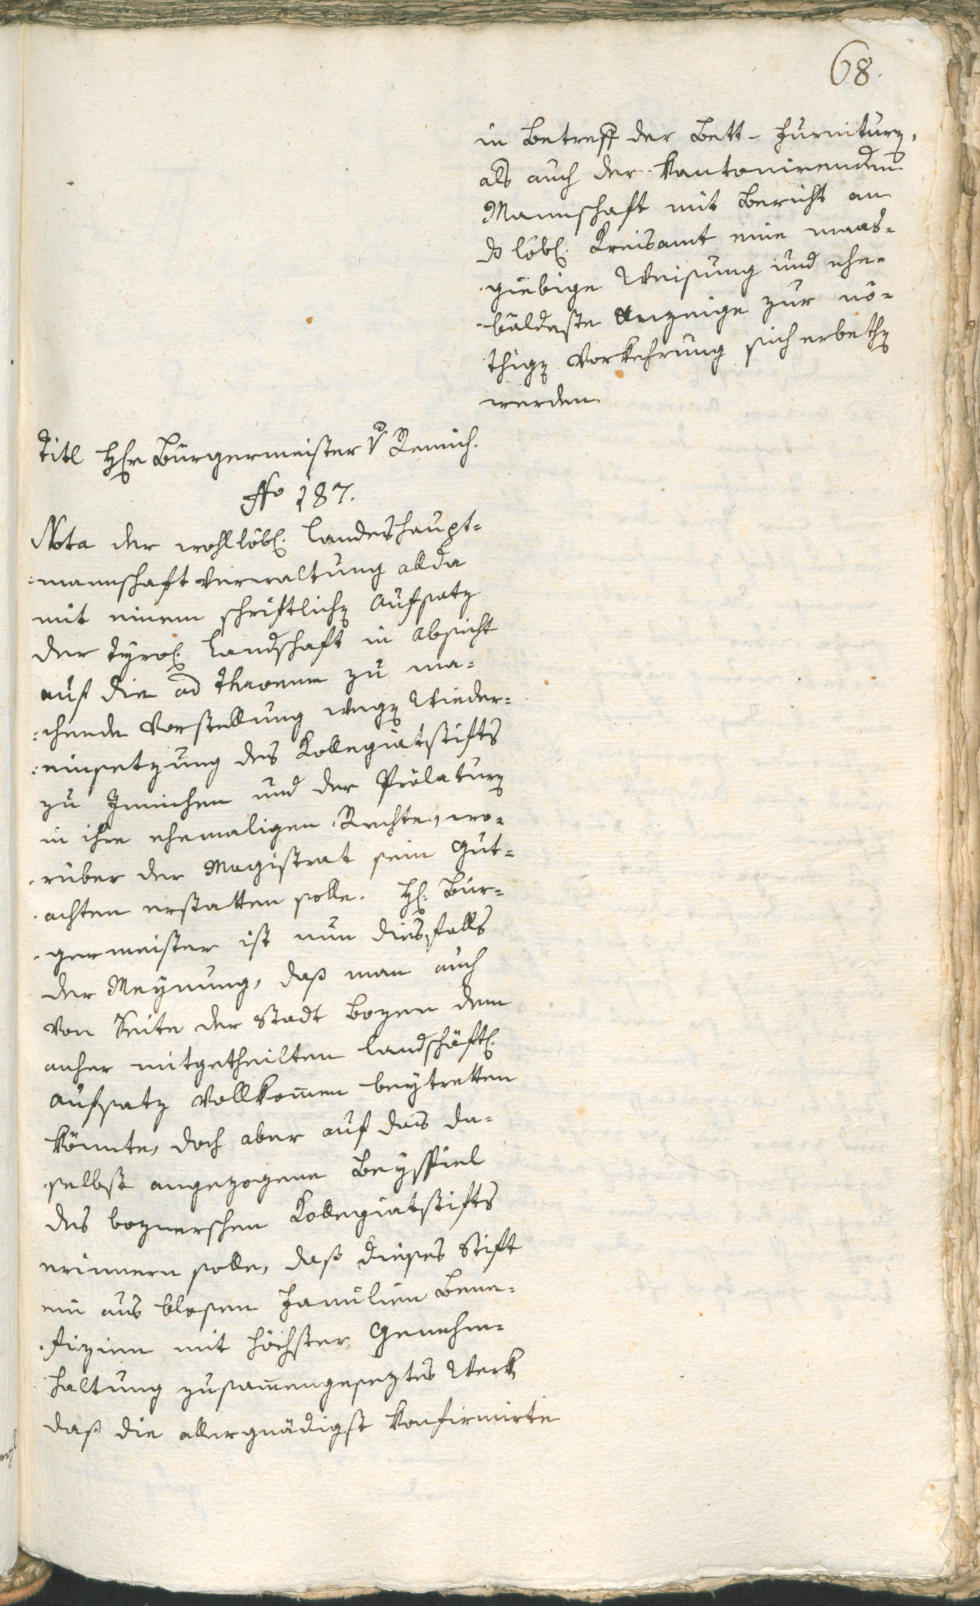 68.
in Betreff der Bett-Furnituren,
als auch der kantonirenden
Mannschaft mit Bericht an
d löbl. Kreisamt eine maas-
giebige Weisung und ehe-
baldeste Anzeige zur nö-
thigen Vorkehrung sich erbethen
werden.
Titl Hr Bürgermeister v. Remich.
No 187.
Nota der wohllöbl. Landeshaupt-
mannschaft Verwaltung allda
mit einem schriftlichen Aufsatz
der tyrol. Landschaft in Absicht
auf die ad Thronum zu ma-
chende Vorstellung wegen Wieder-
einsetzung des Kollegiatstifts
zu Innichen und der Prälaturen
in ihre ehemaligen Rechte, wo-
rüber der Magistrat sein Gut-
achten erstatten solle. H. Bür-
germeister ist nun diesfalls
der Meynung, daß man auch
von Seite der Stadt Bozen dem
anher mitgetheilten landschäftl.
Aufsatz vollkommen beytretten
könnte, doch aber auf das da-
selbst angezogene Beyspiel
des boznerschen Kollegiatstifts
erinnern solle, daß dieses Stift
ein aus blosen Familien Bene-
fizien mit höchster Genehm-
haltung zusammengeseztes Werk
daß die allergnädigst konfirmirte